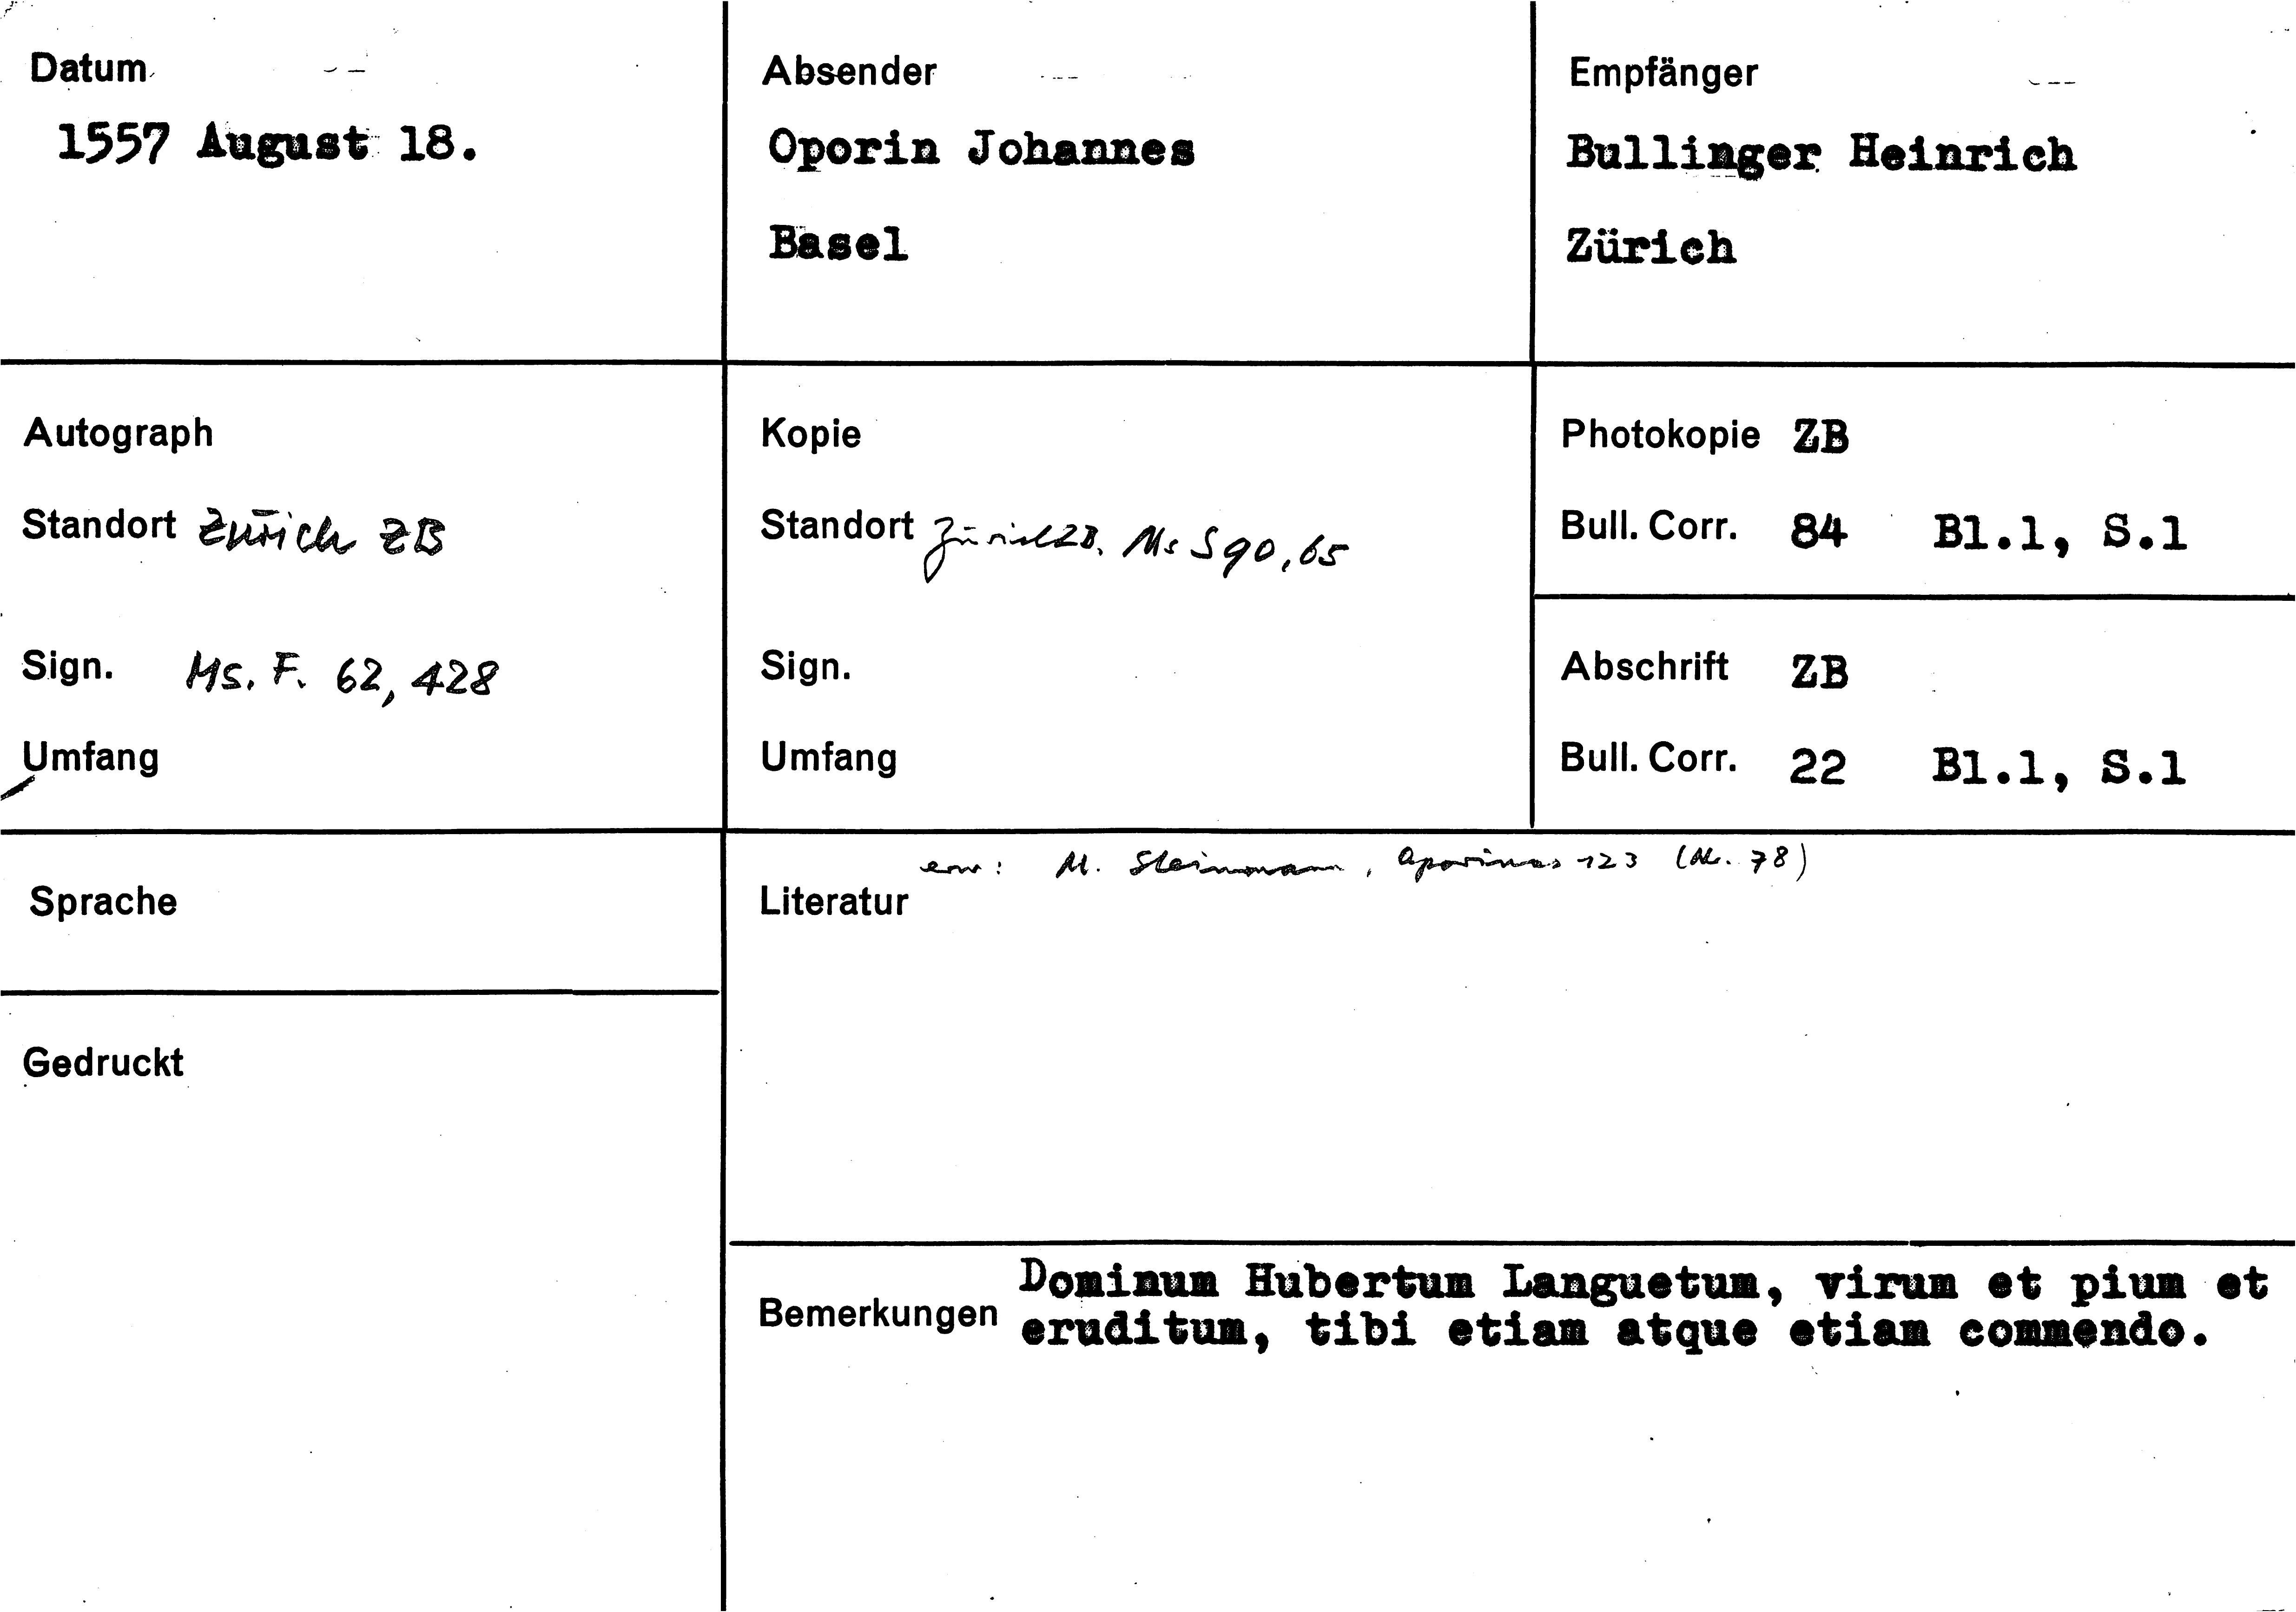 Datum
1557 August 18.
Absender
Oporin Johannes
Basel
Empfänger
Bullinger Heinrich
Zürich
Autograph
Standort Zürich ZB
Sign. Ms. F. 62, 428
Umfang
Kopie
Standort Zürich ZB, Ms S 90, 65
Sign.
Umfang
Photokopie ZB
Bull. Corr. 84 Bl.1, S.1
Abschrift ZB
Bull. Corr. 22 Bl.1, S.1
Sprache
Gedruckt
erw: M. Steinmann, Oporinus 123 (Nr. 78)
Literatur
Bemerkungen
Dominum Hubertum Languetum, virum et pium et
eruditum, tibi etiam atque etiam commendo.